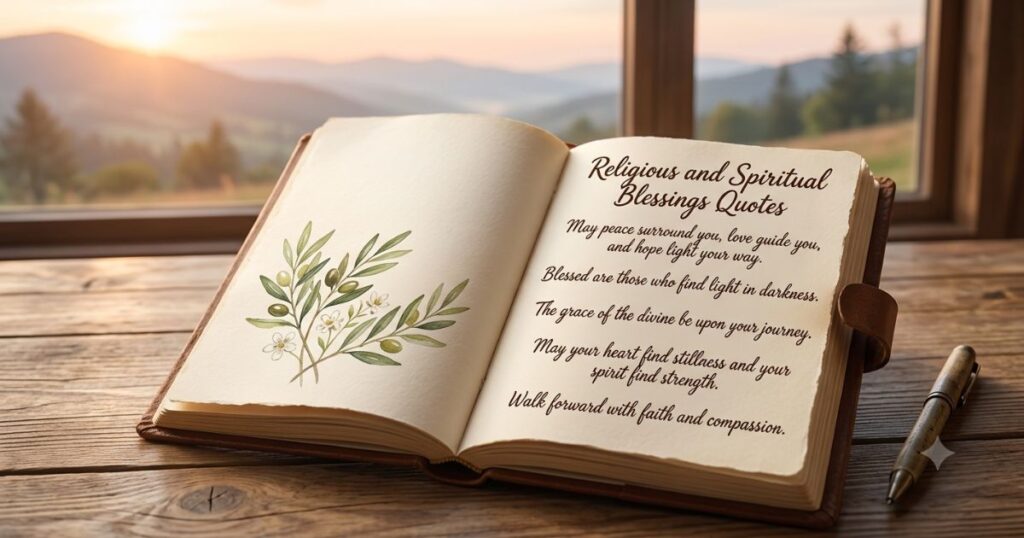 Religious and Spiritual
Blessings Quotes
May peace surround you, love guide you,
and hope light your way.
Blessed are those who find light in darkness.
The grace of the divine be upon your journey.
May your heart find stillness and your
spirit find strength.
Walk forward with faith and compassion.